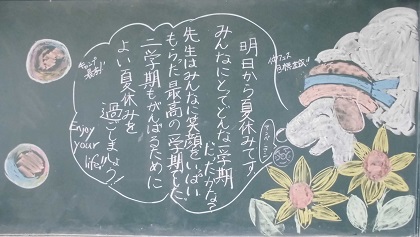 明日から夏休みです!
みんなにとってどんな一学期
だったかな?
先生はみんなに笑顔をいっぱい
もらった最高の一学期でした
二学期もがんばるために
よい夏休みを
過ごましょう!
Enjoy
your
life!!